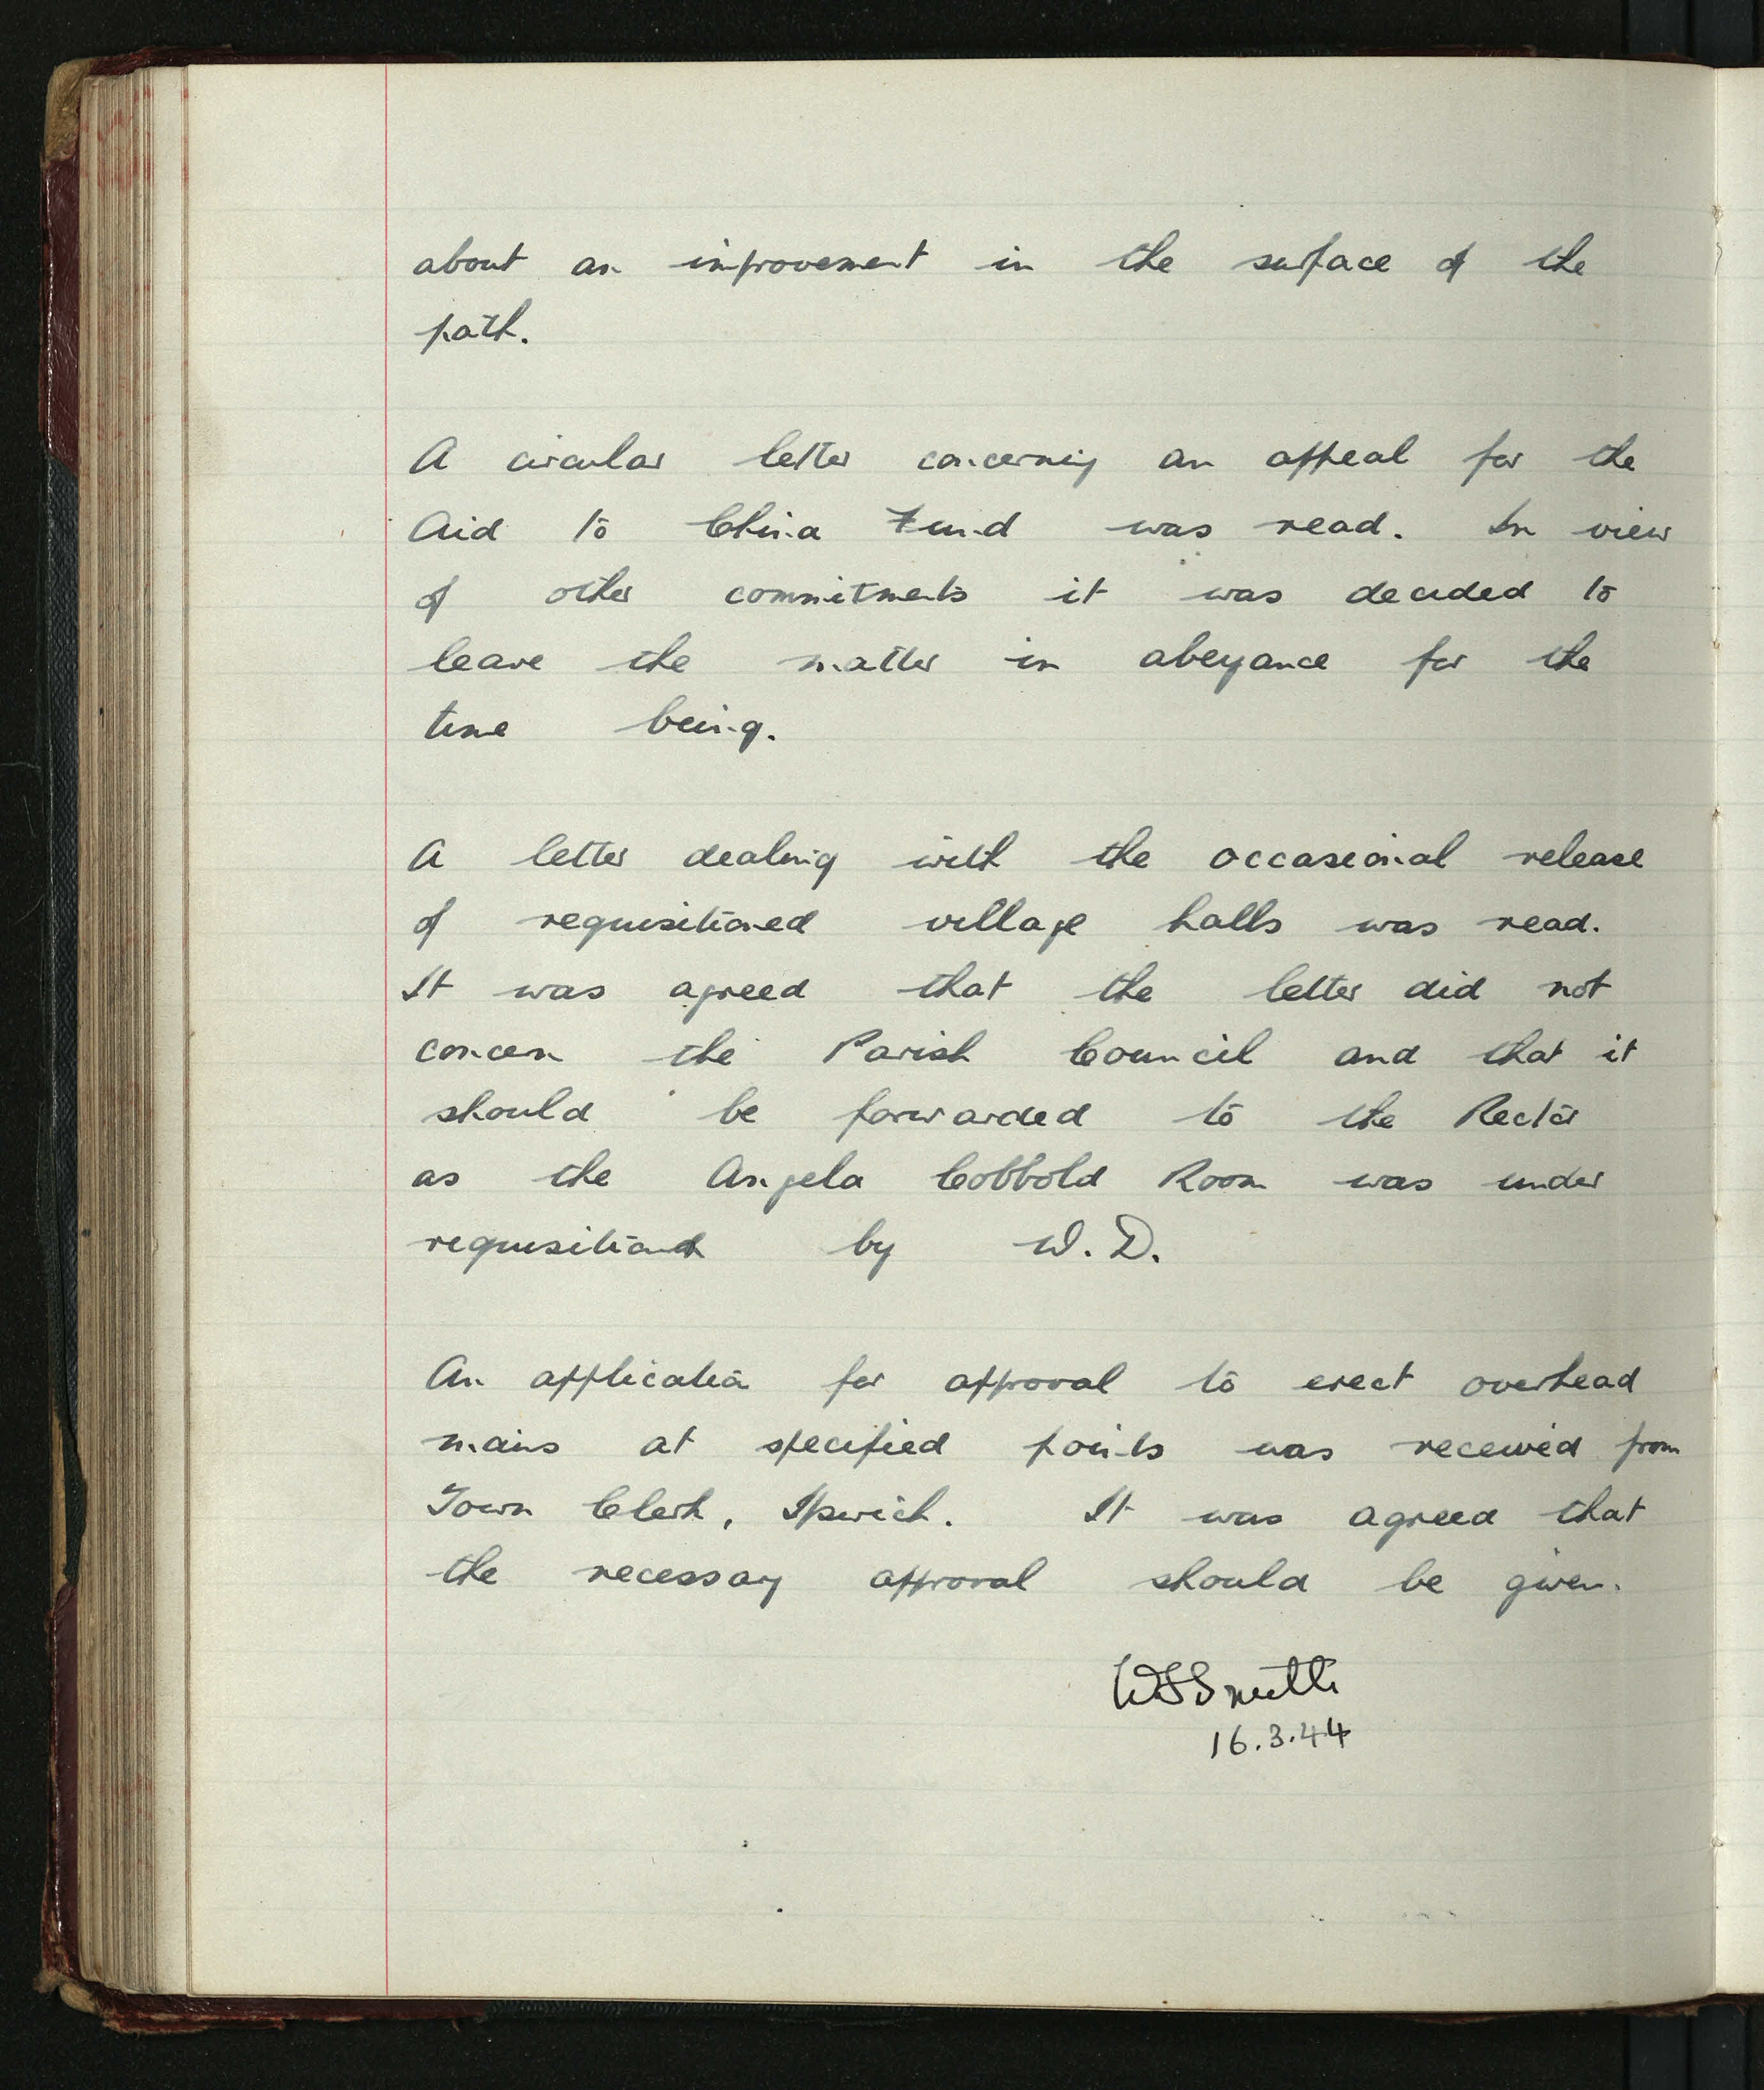 about an improvement in the surface of the
path.
A circular letter concerning an appeal for the
Aid to China Fund was read. In view
of other commitments it was decided to
leave the matter in abeyance for the
time being.
A letter dealing with the occasional release
of requisitioned village halls was read.
It was agreed that the letter did not
concern the Parish Council and that it
should be forwarded to the Rector
as the Angela Cobbold Room was under
requisition by W.D.
An application for approval to erect overhead
mains at specified points was received from
Town Clerk, Ipswich. It was agreed that
the necessary approval should be given.
WSSmith
16.3.44